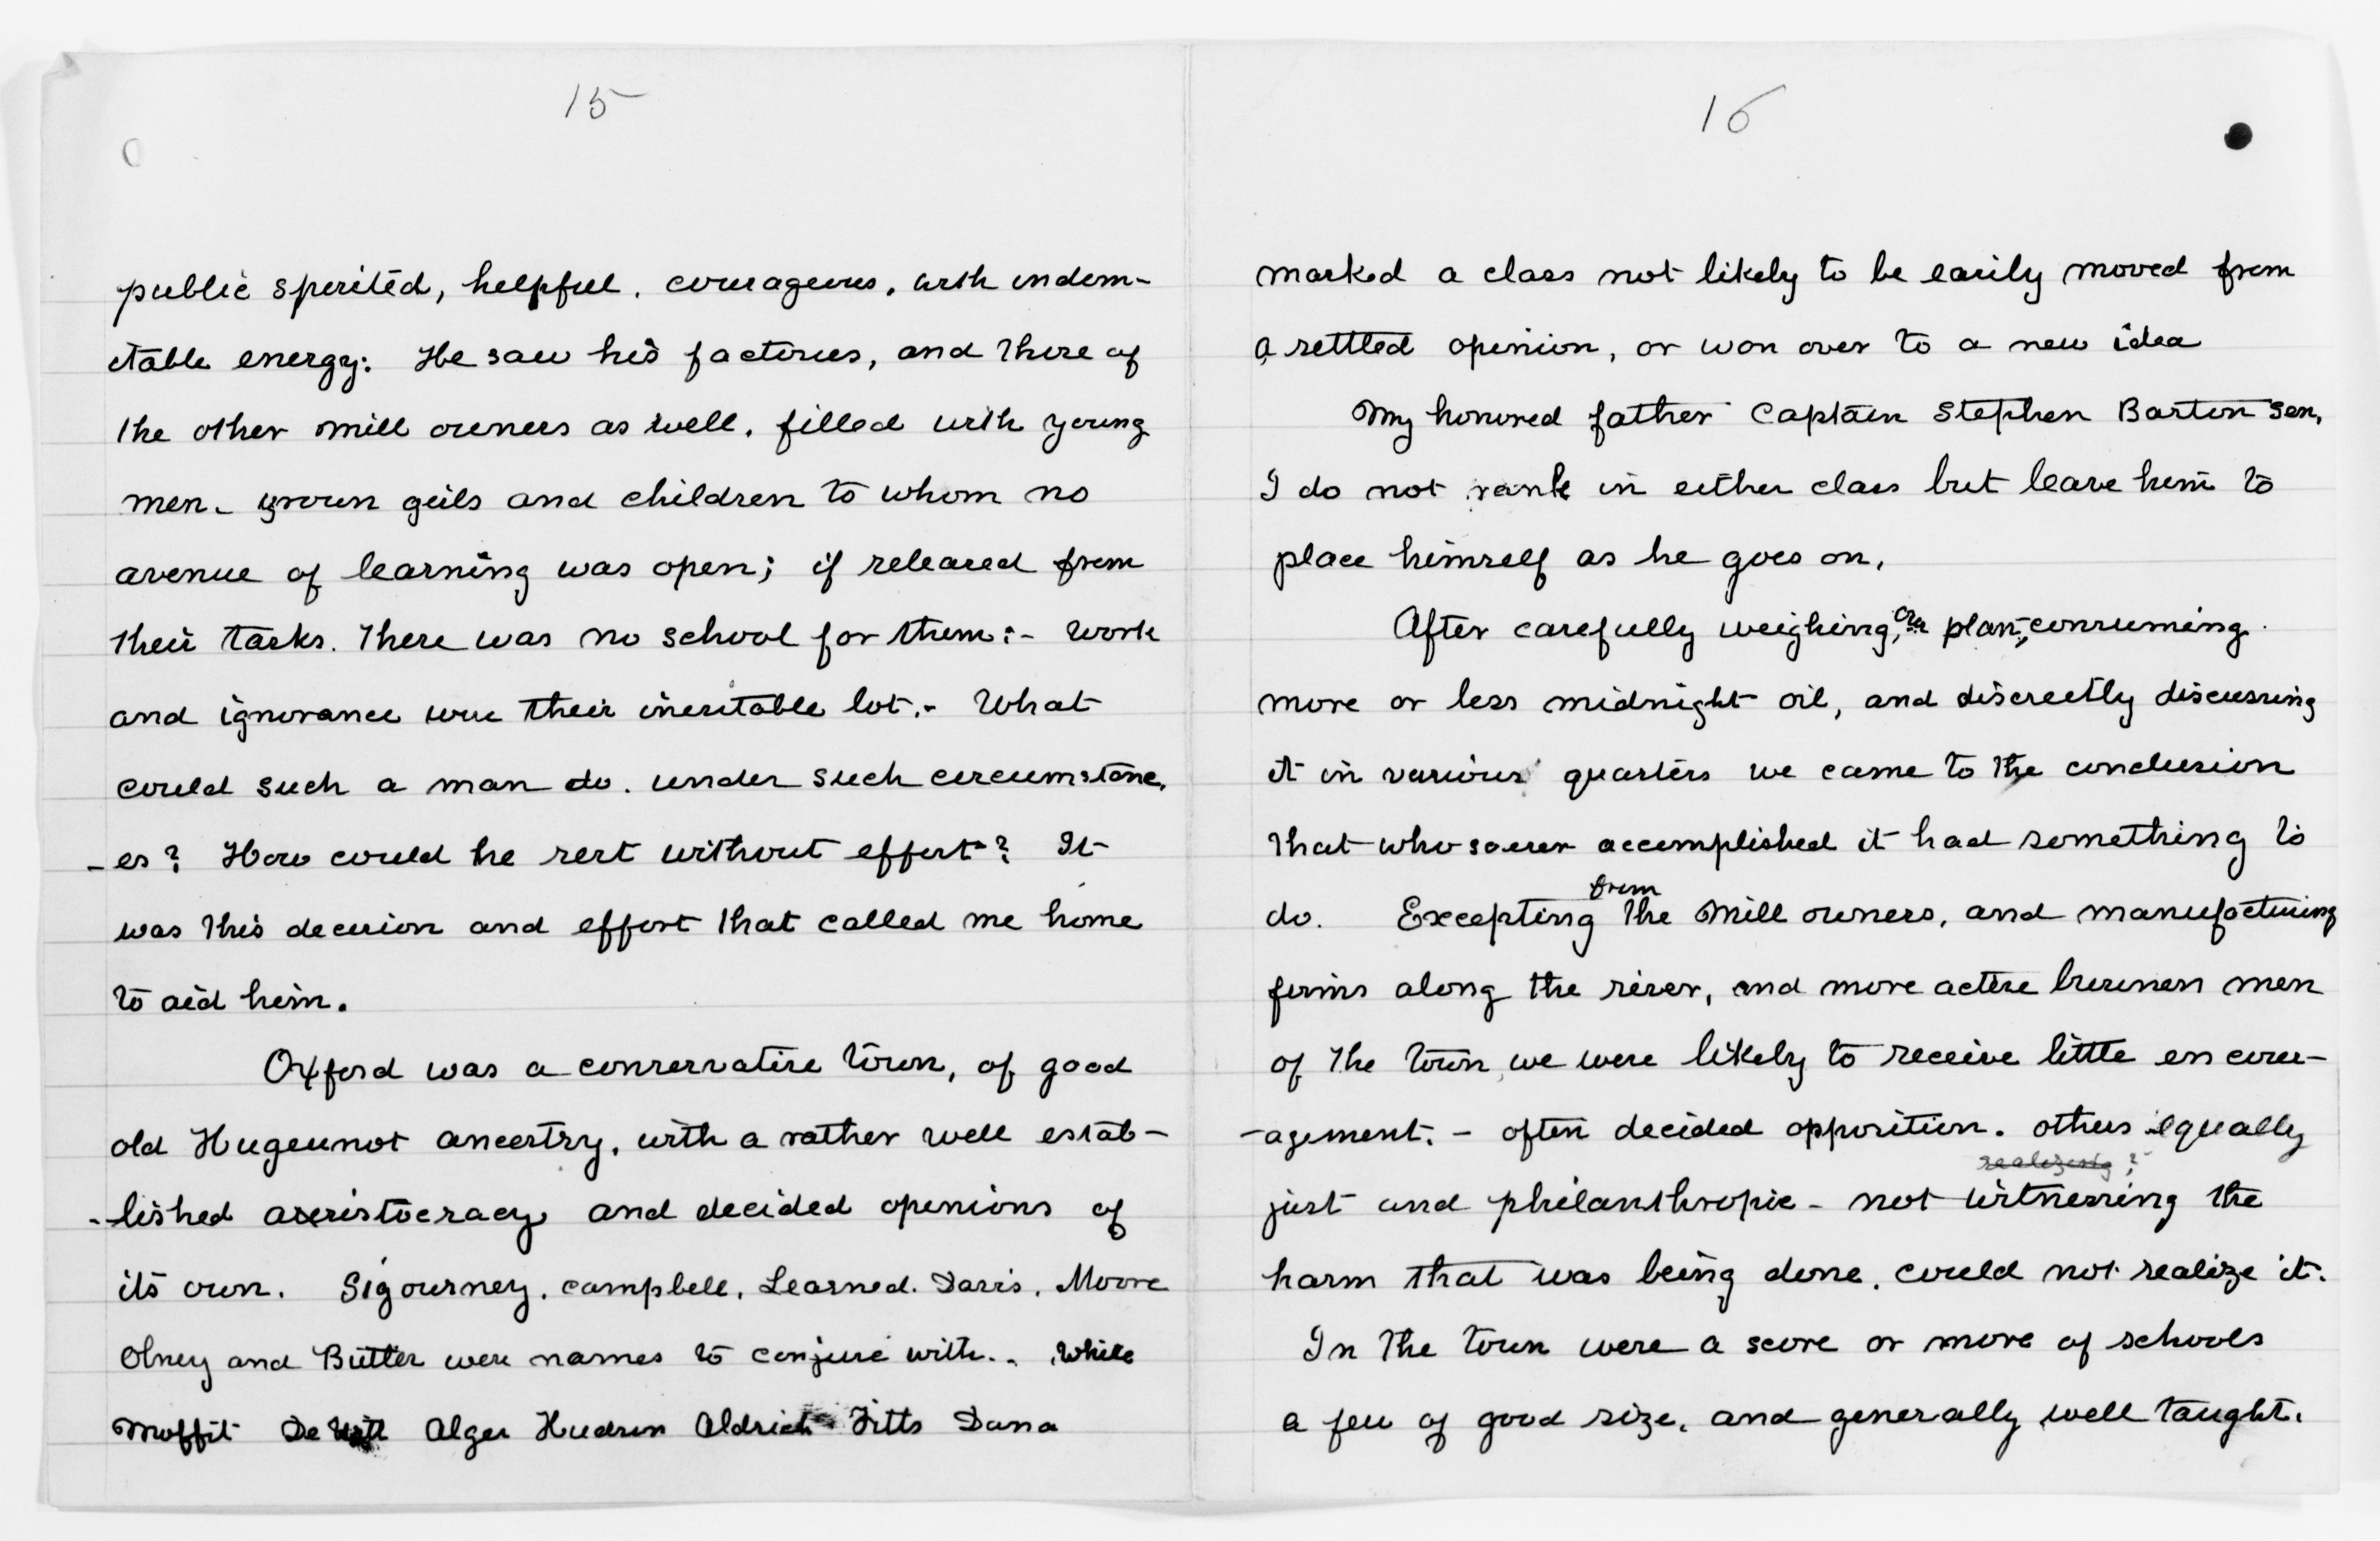 15
public spirited, helpful, courageous, with indom-
itable energy: He saw his factories, and those of
the other mill owners as well, filled with young
men, grown girls and children to whom no
avenue of learning was open; if released from
their tasks. There was no school for them:- Work
and ignorance were their inevitable lot.- What
could such a man do. under such circumstanc,
-es? How could he rest without effort? It
was this decision and effort that called me home
to aid him.
Oxford was a conservative town, of good
old Hugeunot ancestry, with a rather well estab-
-lished aristocracy and decided openions of
its own. Sigourney, Campbell, Learned. Davis, Moore
Olney and Butler were names to conjure with.- While
Moffit De Witt Alger Hudson Aldrich Fitts Dana
16
marked a class not likely to be easily moved from
a settled openion, or won over to a new idea
My honored father Captain Stephen Barton Sen,
I do not rank in either class but leave him to
place himself as he goes on,
After carefully weighing, our plan, consuming
more or less midnight oil, and discreetly discussing
it in various quarters we came to the conclusion
that whosoever accomplished it had something to
do. Excepting from the Mill owners, and manufacturing
firms along the river, and more active business men
of the town, we were likely to receive little encour-
-agement. - often decided opposition. others equally
realizing?
just and philanthropic - not witnessing the
harm that was being done, could not realize it.
In the town were a score or more of schools
a few of good size, and generally well taught.